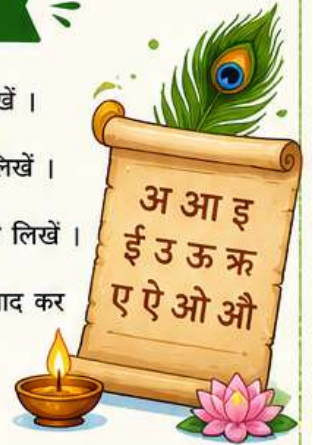 खें ।
लिखें ।
लिखें ।
ाद कर
अ आ इ
ई उ ऊ ऋ
ए ऐ ओ औ